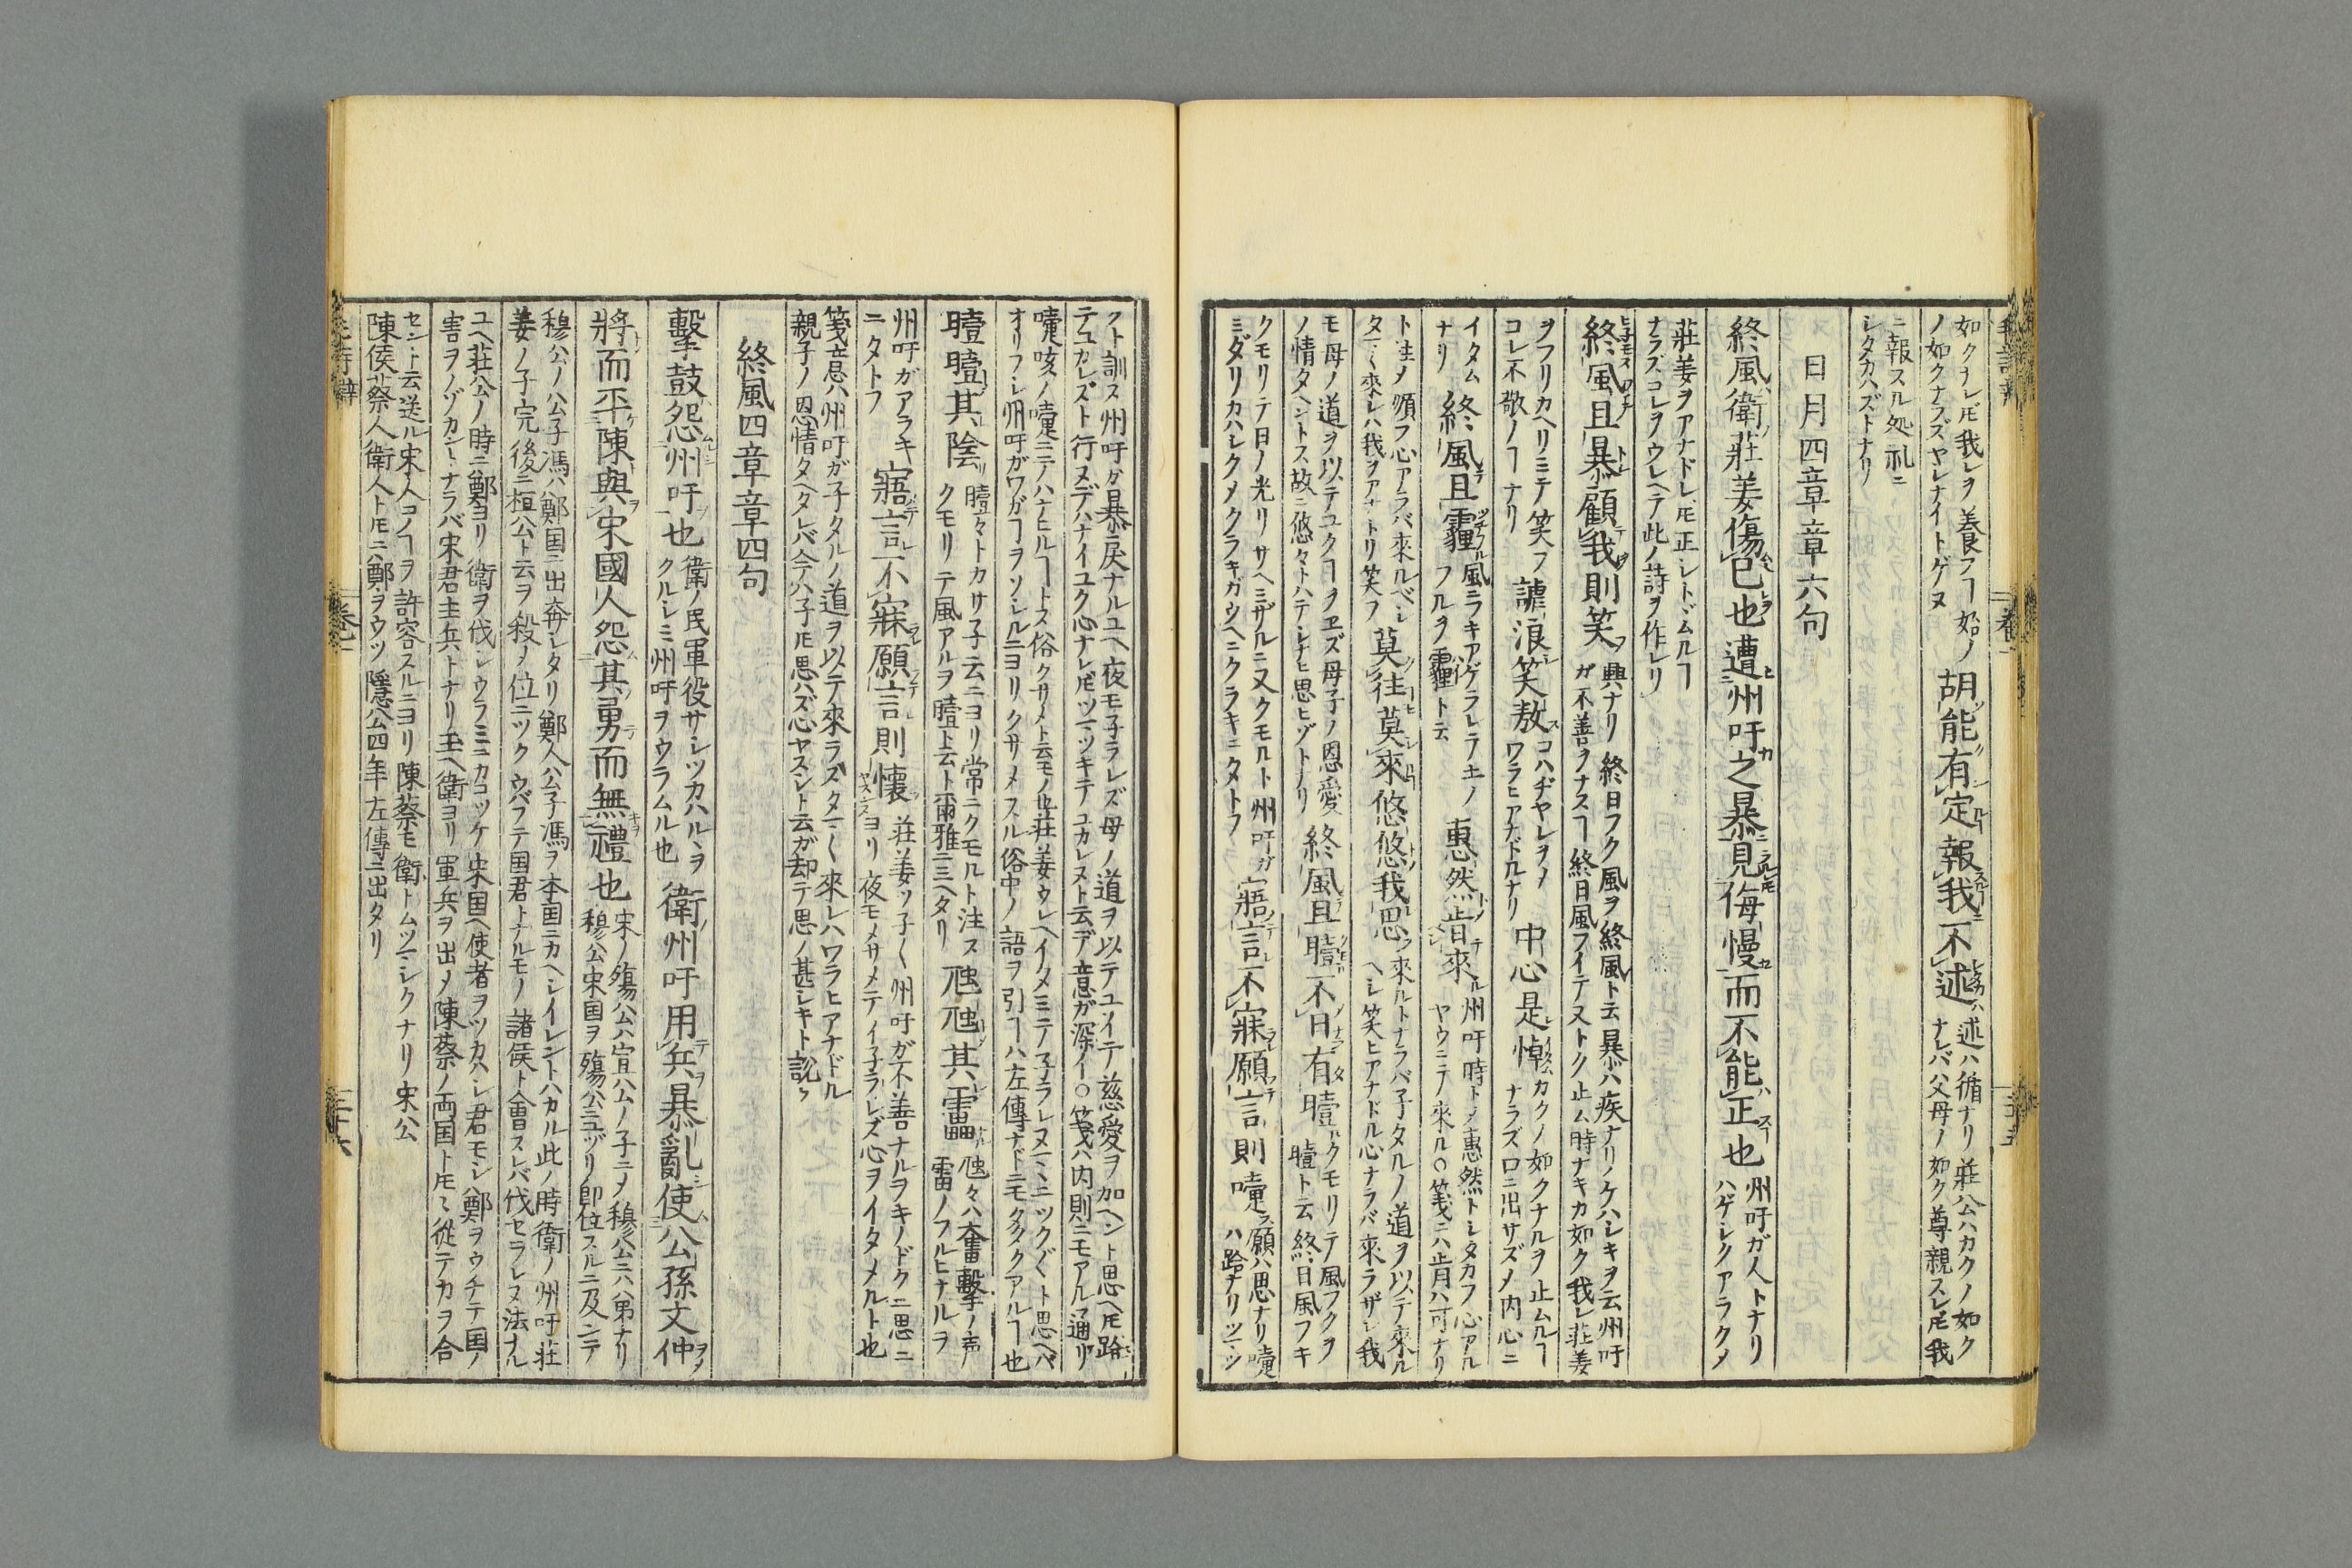 如クナレ𪜈我レヲ養フヿ始ノ
ノ如クナラズヤレナイトゲヌ
胡能有定報我不述
述ハ循ナリ莊公ハカクノ如ク
ナレバ父母ノ如ク尊親スレ𪜈我
ニ報スル処礼ニ
シタカハズトナリ
日月四章章六句
終風衛莊姜傷己也遭州吁之暴見侮慢而不能正也
州吁ガ人トナリ
ハゲシクアラクメ
莊姜ヲアナドレ𪜈正シトヾムルヿ
ナラズコレヲウレヘテ此ノ詩ヲ作レリ
終風且暴顧我則笑
興ナリ終日フク風ヲ終風ト云暴ハ疾ナリノケハシキヲ云州吁
ガ不善ヲナスヿ終日風フイテヌトク止ム時ナキカ如ク我レ莊姜
ヲフリカヘリミテ笑フ
コレ不敬ノヿナリ
謔浪笑敖
コハヂヤレヲメ
ワラヒアナドルナリ
中心是悼
カクノ如クナルヲ止ムルヿ
ナラズ口ニ出サズメ内心ニ
イタム
ナリ
終風且霾
風ニラキアゲラレテ土ノ
フルヲ霾ト云
惠然肯來
州吁時トメ惠然トシタカフ心アル
ヤウニテ來ル○箋ニハ肯ハ可ナリ
ト注メ順フ心アラバ來ルベシ
タマ〱來レハ我ヲアナトリ笑フ
莫往莫來悠悠我思
來ルトナラバ子タルノ道ヲ以テ來ル
ヘシ笑ヒアナドル心ナラバ來ラザレ我
モ母ノ道ヲ以テユクヿヲヱズ母子ノ恩愛
ノ情タヘントス故ニ悠々トハテシナヒ思ヒゾトナリ
終風且曀不日有曀
クモリテ風フクヲ
曀ト云終日風フキ
クモリテ日ノ光リサヘミザルニ又クモルト州吁ガ
ミダリカハシクメクラキガウヘニクラキニタトフ
寤言不寐願言則嚏
願ハ思ナリ嚏
ハ跲ナリツマツ
クト訓ス州吁ガ暴戻ナルユヘ夜モ子ラレズ母ノ道ヲ以テユイテ慈愛ヲ加ヘント思ヘ𪜈跲
テユカレズト行ヌデハナイユク心ナレ𪜈ツマツキテユカレヌト云デ意ガ深イ○箋ハ内則ニモアル通リ
嚏咳ノ嚏ニテハナヒルヿトス俗クサメト云モノ也莊姜ウレヘイタミテ子ラレヌマヽニツク〲ト思ヘバ
オリフシ州吁ガワガヿヲソシルニヨリクサメスル俗中ノ語ヲ引ヿハ左傳ナドニモタクアルヿ也
曀曀其陰
曀々トカサ子云ニヨリ常ニクモルト注ス
クモリテ風アルヲ曀ト云ト爾雅ニミヘタリ
虺虺其靁
虺々ハ奮擊ノ声ノ
雷ノフルヒナルヲ
州吁ガアラキ
ニタトフ
寤言不寐願言則懷
莊姜ソ子〱州吁ガ不善ナルヲキノドクニ思ニ
ヨリ夜モメサメテイ子ラレズ心ヲイタメルト也
箋意ハ州吁ガ子タルノ道ヲ以テ來ラズタマ〱來レハワラヒアナドル
親子ノ恩情タヘタレバ今ハ子𪜈思ハズ心ヤスシト云ガ却テ思ノ甚シキト説ク
終風四章章四句
擊鼓怨州吁也
衛ノ民軍役サレツカハルヽヲ
クルシミ州吁ヲウラムル也
衛州吁用兵暴亂使公孫文仲
將而平陳與宋國人怨其勇而無禮也
宋ノ殤公ハ宣公ノ子ニメ穆公ニハ弟ナリ
穆公宋国ヲ殤公ニユヅリ即位スルニ及ンデ
穆公ノ公子馮ハ鄭国ニ出奔シタリ鄭人公子馮ヲ本国ニカヘシイレントハカル此ノ時衛ノ州吁莊
姜ノ子完後ニ桓公ト云ヲ殺メ位ニツクウバフテ国君トナルモノ諸侯ト會スレバ伐セラレヌ法ナル
ユヘ莊公ノ時ニ鄭ヨリ衛ヲ伐シウラミニカコツケ宋国ヘ使者ヲツカハシ君モシ鄭ヲウチテ国ノ
害ヲノゾカントナラバ宋君主兵トナリ玉ヘ衛ヨリ軍兵ヲ出メ陳蔡ノ両国ト𪜈ニ從テカヲ合
セント云送ル宋人コノヿヲ許容スルニヨリ陳蔡モ衛トムツマシクナリ宋公
陳侯蔡人衛人ト𪜈ニ鄭ヲウツ隱公四年左傳ニ出タリ